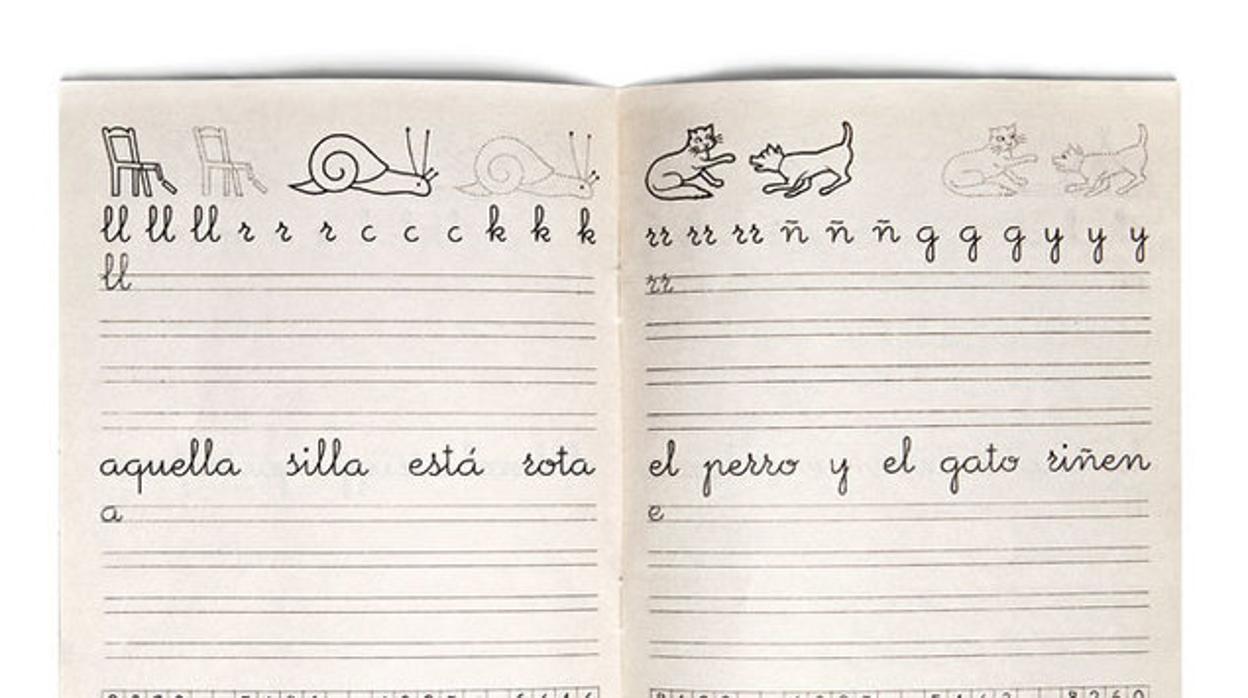 ll ll ll r r r c c c k k k
ll
aquella silla está rota
a
rr rr rr ñ ñ ñ g g g y y y
rr
el perro y el gato riñen
e